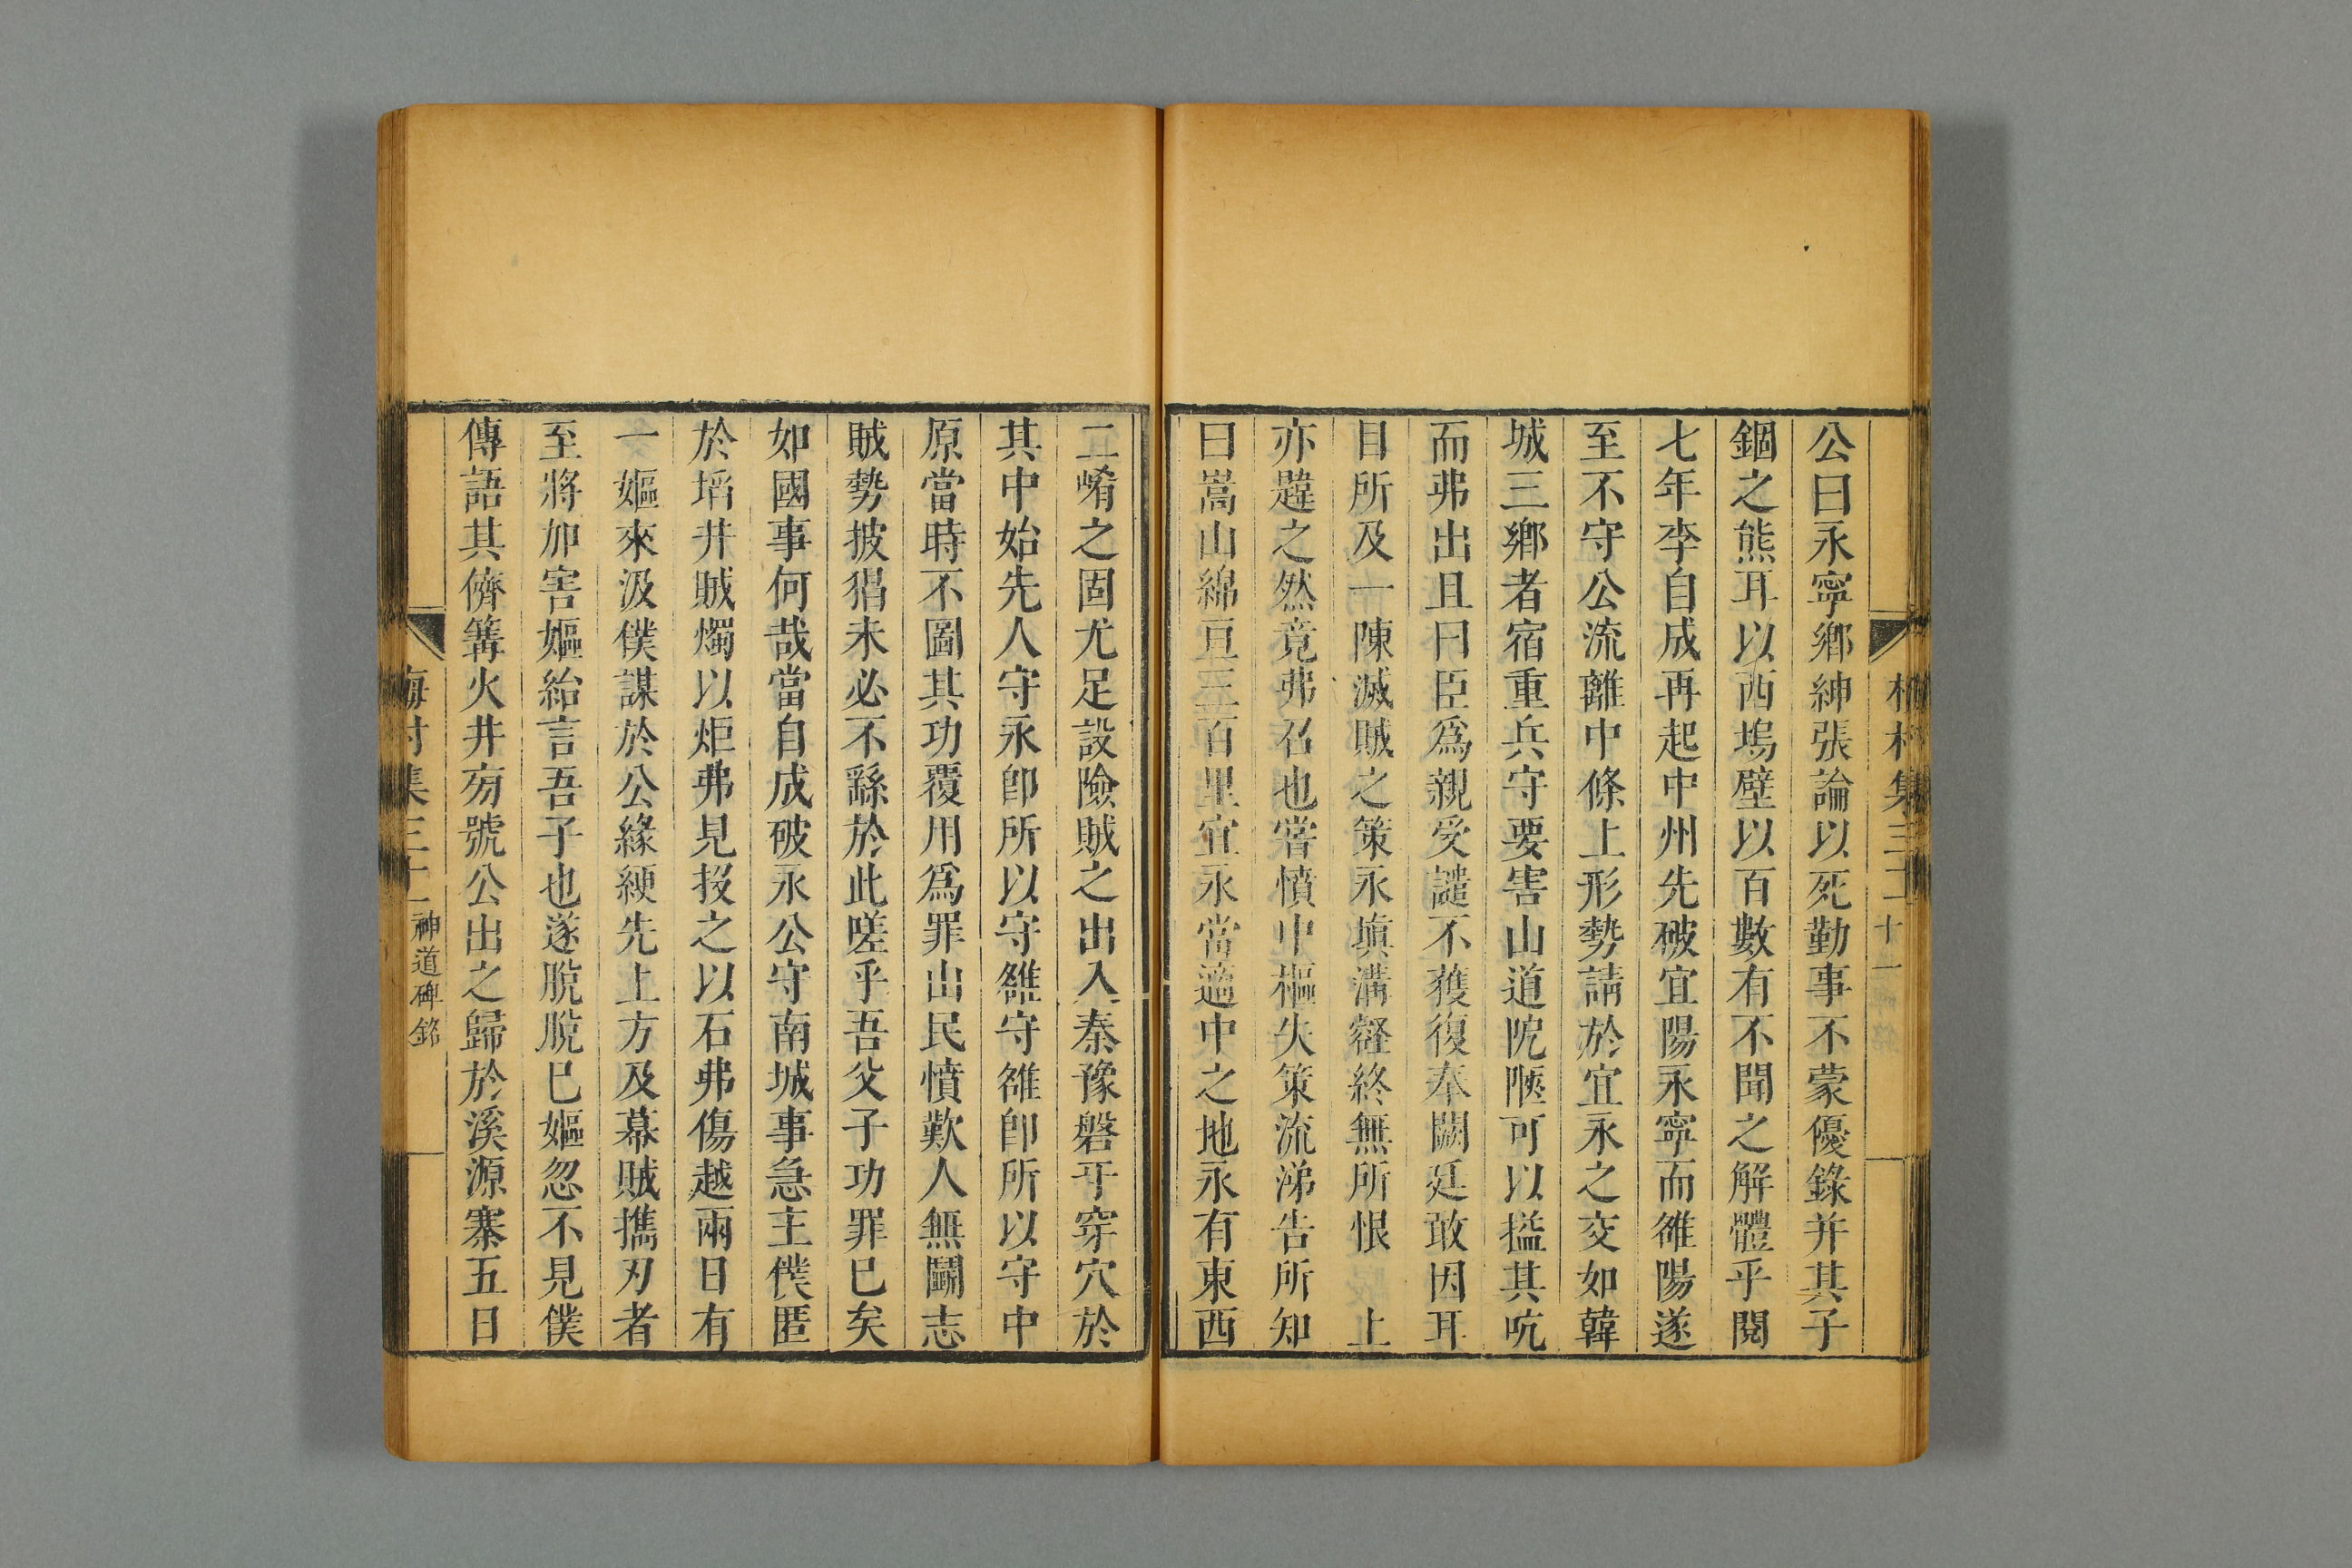 梅村集三十二 十一
公曰永寧鄉紳張論以死勤事不蒙優錄并其子
錮之熊耳以西塢壁以百數有不聞之解體乎閱
七年李自成再起中州先破宜陽永寧而雒陽遂
至不守公流離中條上形勢請於宜永之交如韓
城三鄉者宿重兵守要害山道阨陿可以搤其吭
而弗出且曰臣爲親受譴不獲復奉闕廷敢因耳
目所及一陳滅賊之策永塡溝壑終無所恨 上
亦韙之然竟弗召也嘗憤中樞失策流涕告所知
曰嵩山綿亘三百里宜永當適中之地永有東西
二崤之固尤足設險賊之出入秦豫磐牙穿穴於
其中始先人守永卽所以守雒守雒卽所以守中
原當時不圖其功覆用爲罪出民憤歎人無鬭志
賊勢披猖未必不繇於此嗟乎吾父子功罪已矣
如國事何哉當自成破永公守南城事急主僕匿
於堖井賊燭以炬弗見投之以石弗傷越兩日有
一嫗來汲僕謀於公緣綆先上方及幕賊攜刃者
至將加害嫗紿言吾子也遂脫脫已嫗忽不見僕
傳語其儕篝火井旁號公出之歸於溪源寨五日
梅村集三十二 神道碑銘